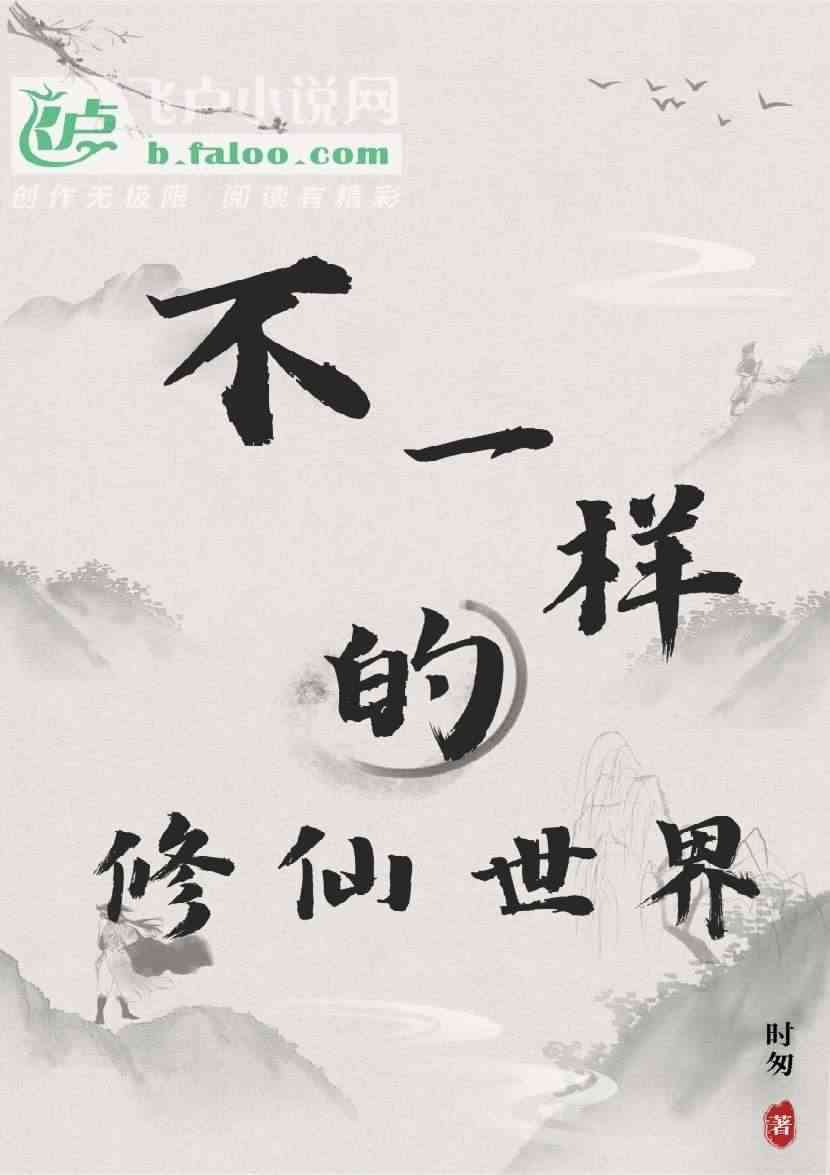 飞卢小说网
飞卢
b.faloo.com
创作无极限 阅读有精彩
不一样
的
修仙世界
时匆
著